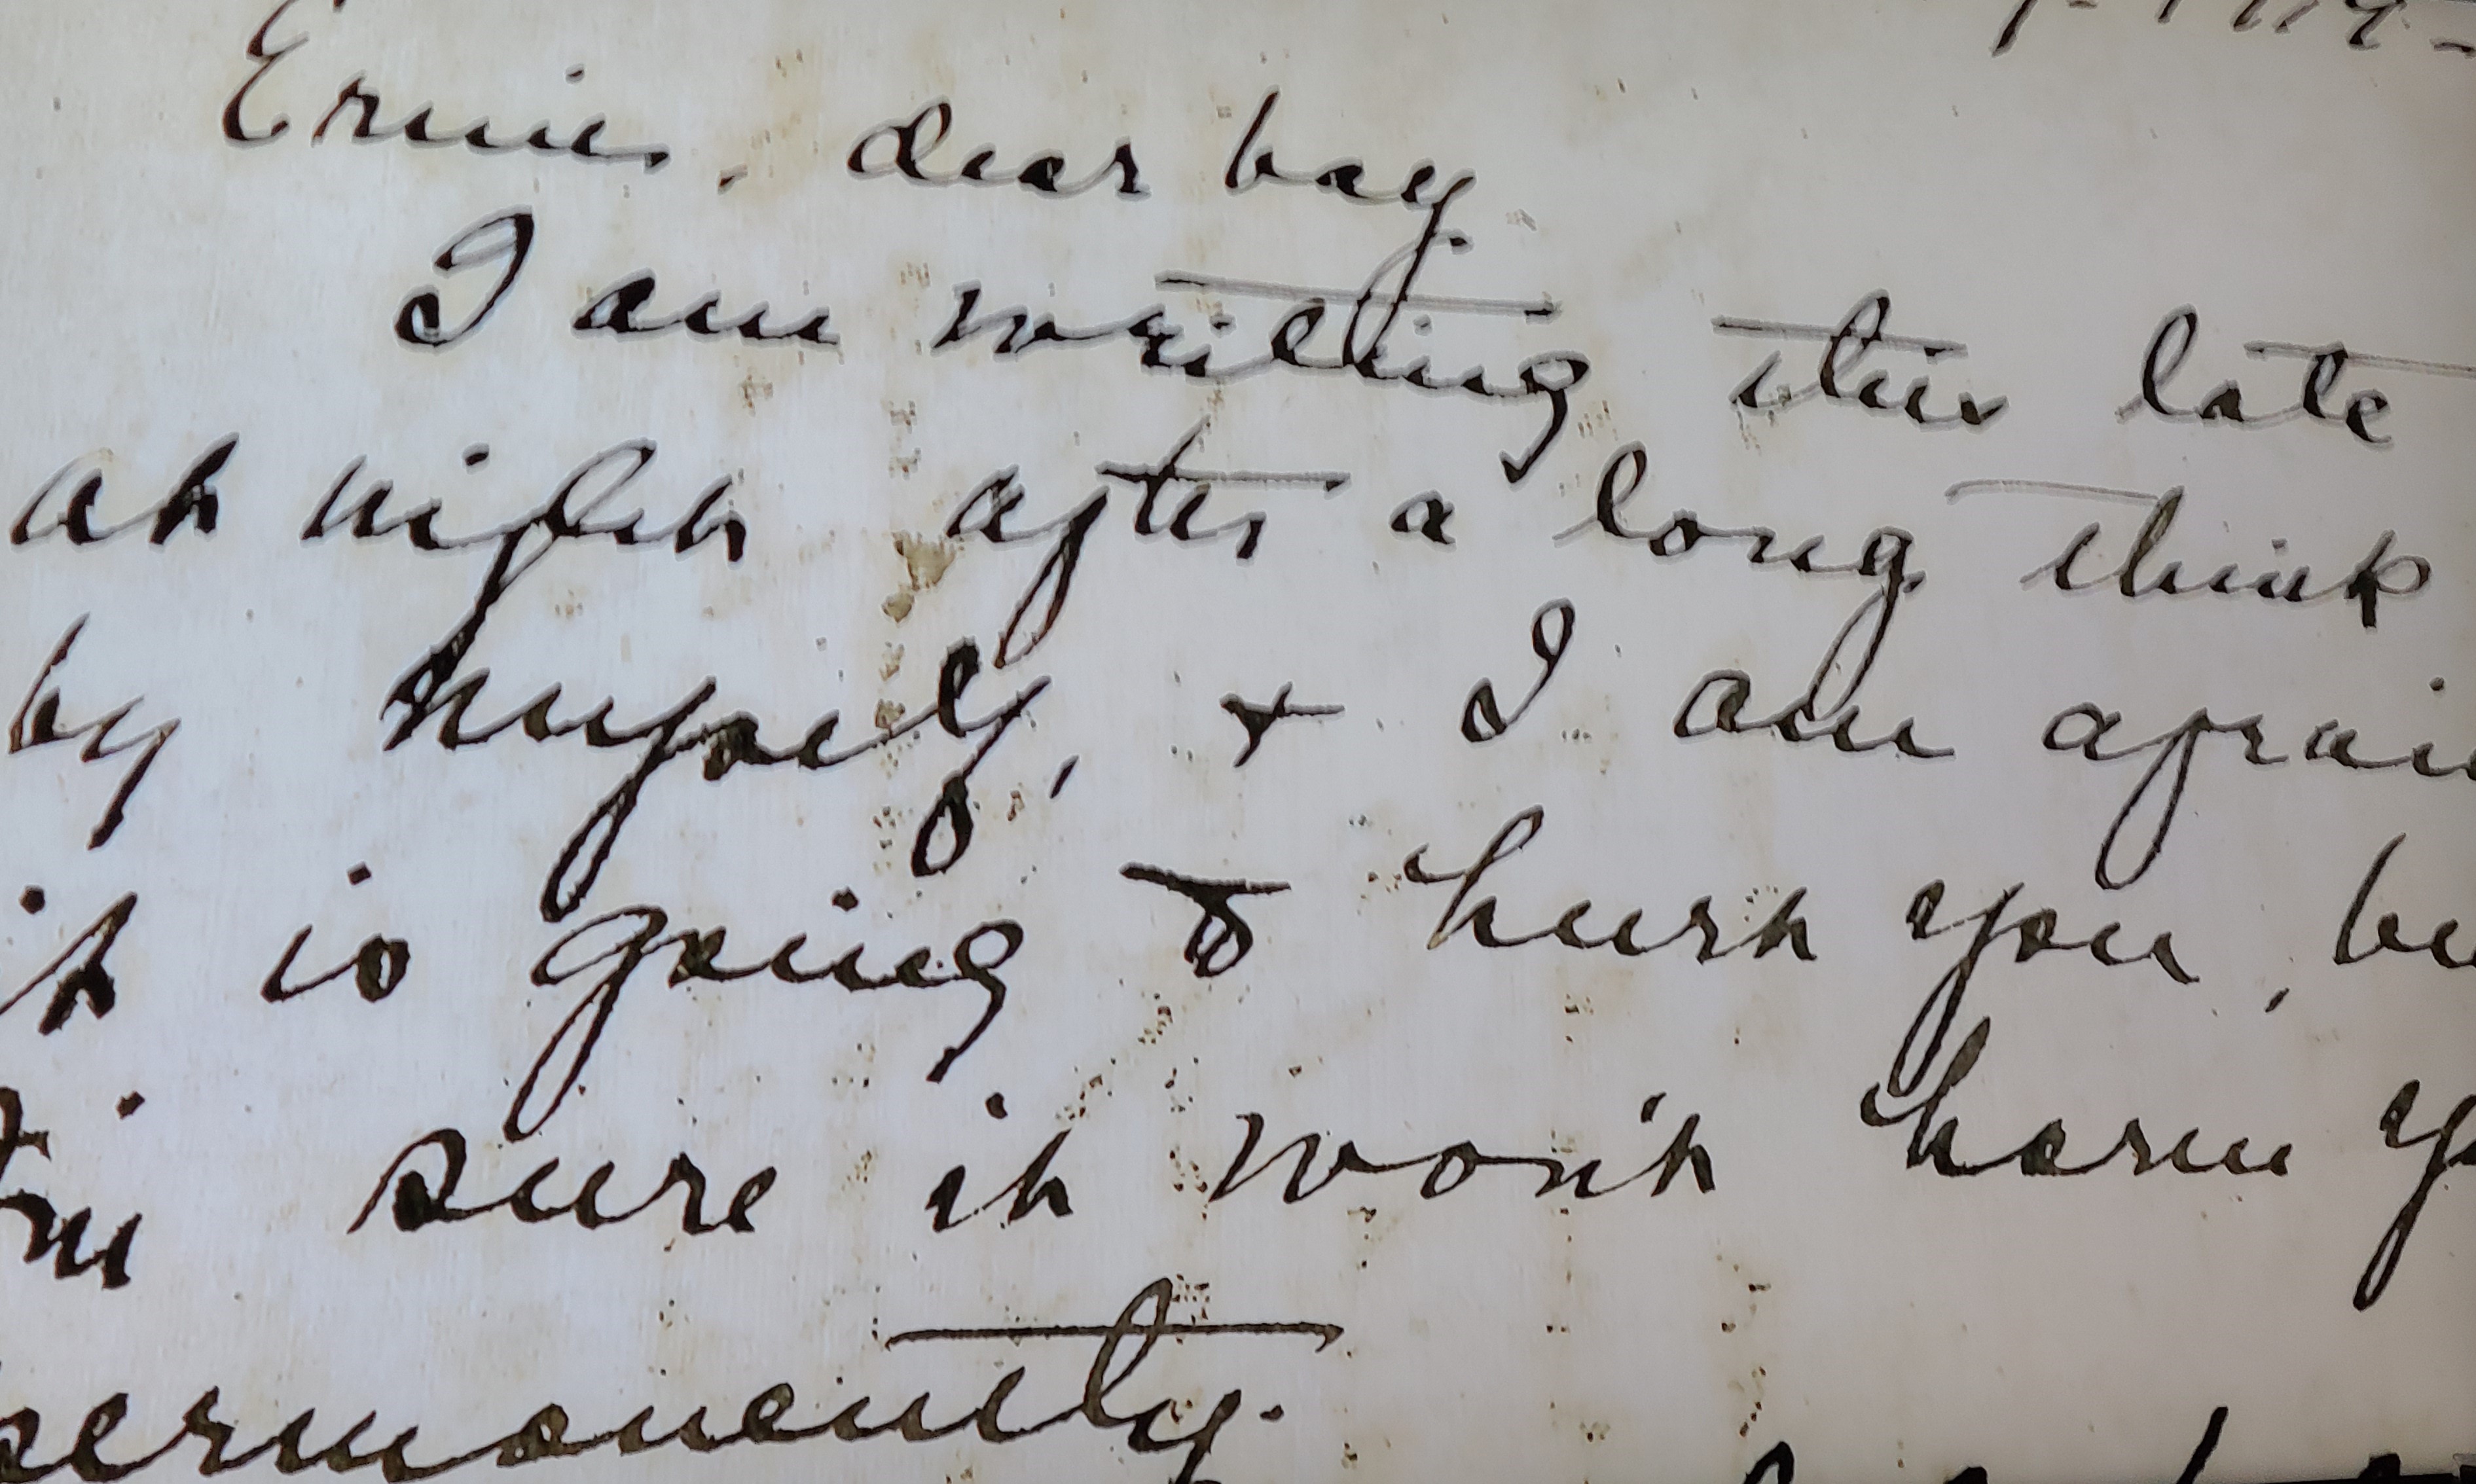 Ernie, dear boy,
I am writing this late
at night after a long think
by myself, + I am afrai
it is going to hurt you, bu
I'm sure it won't harm yo
permanently.